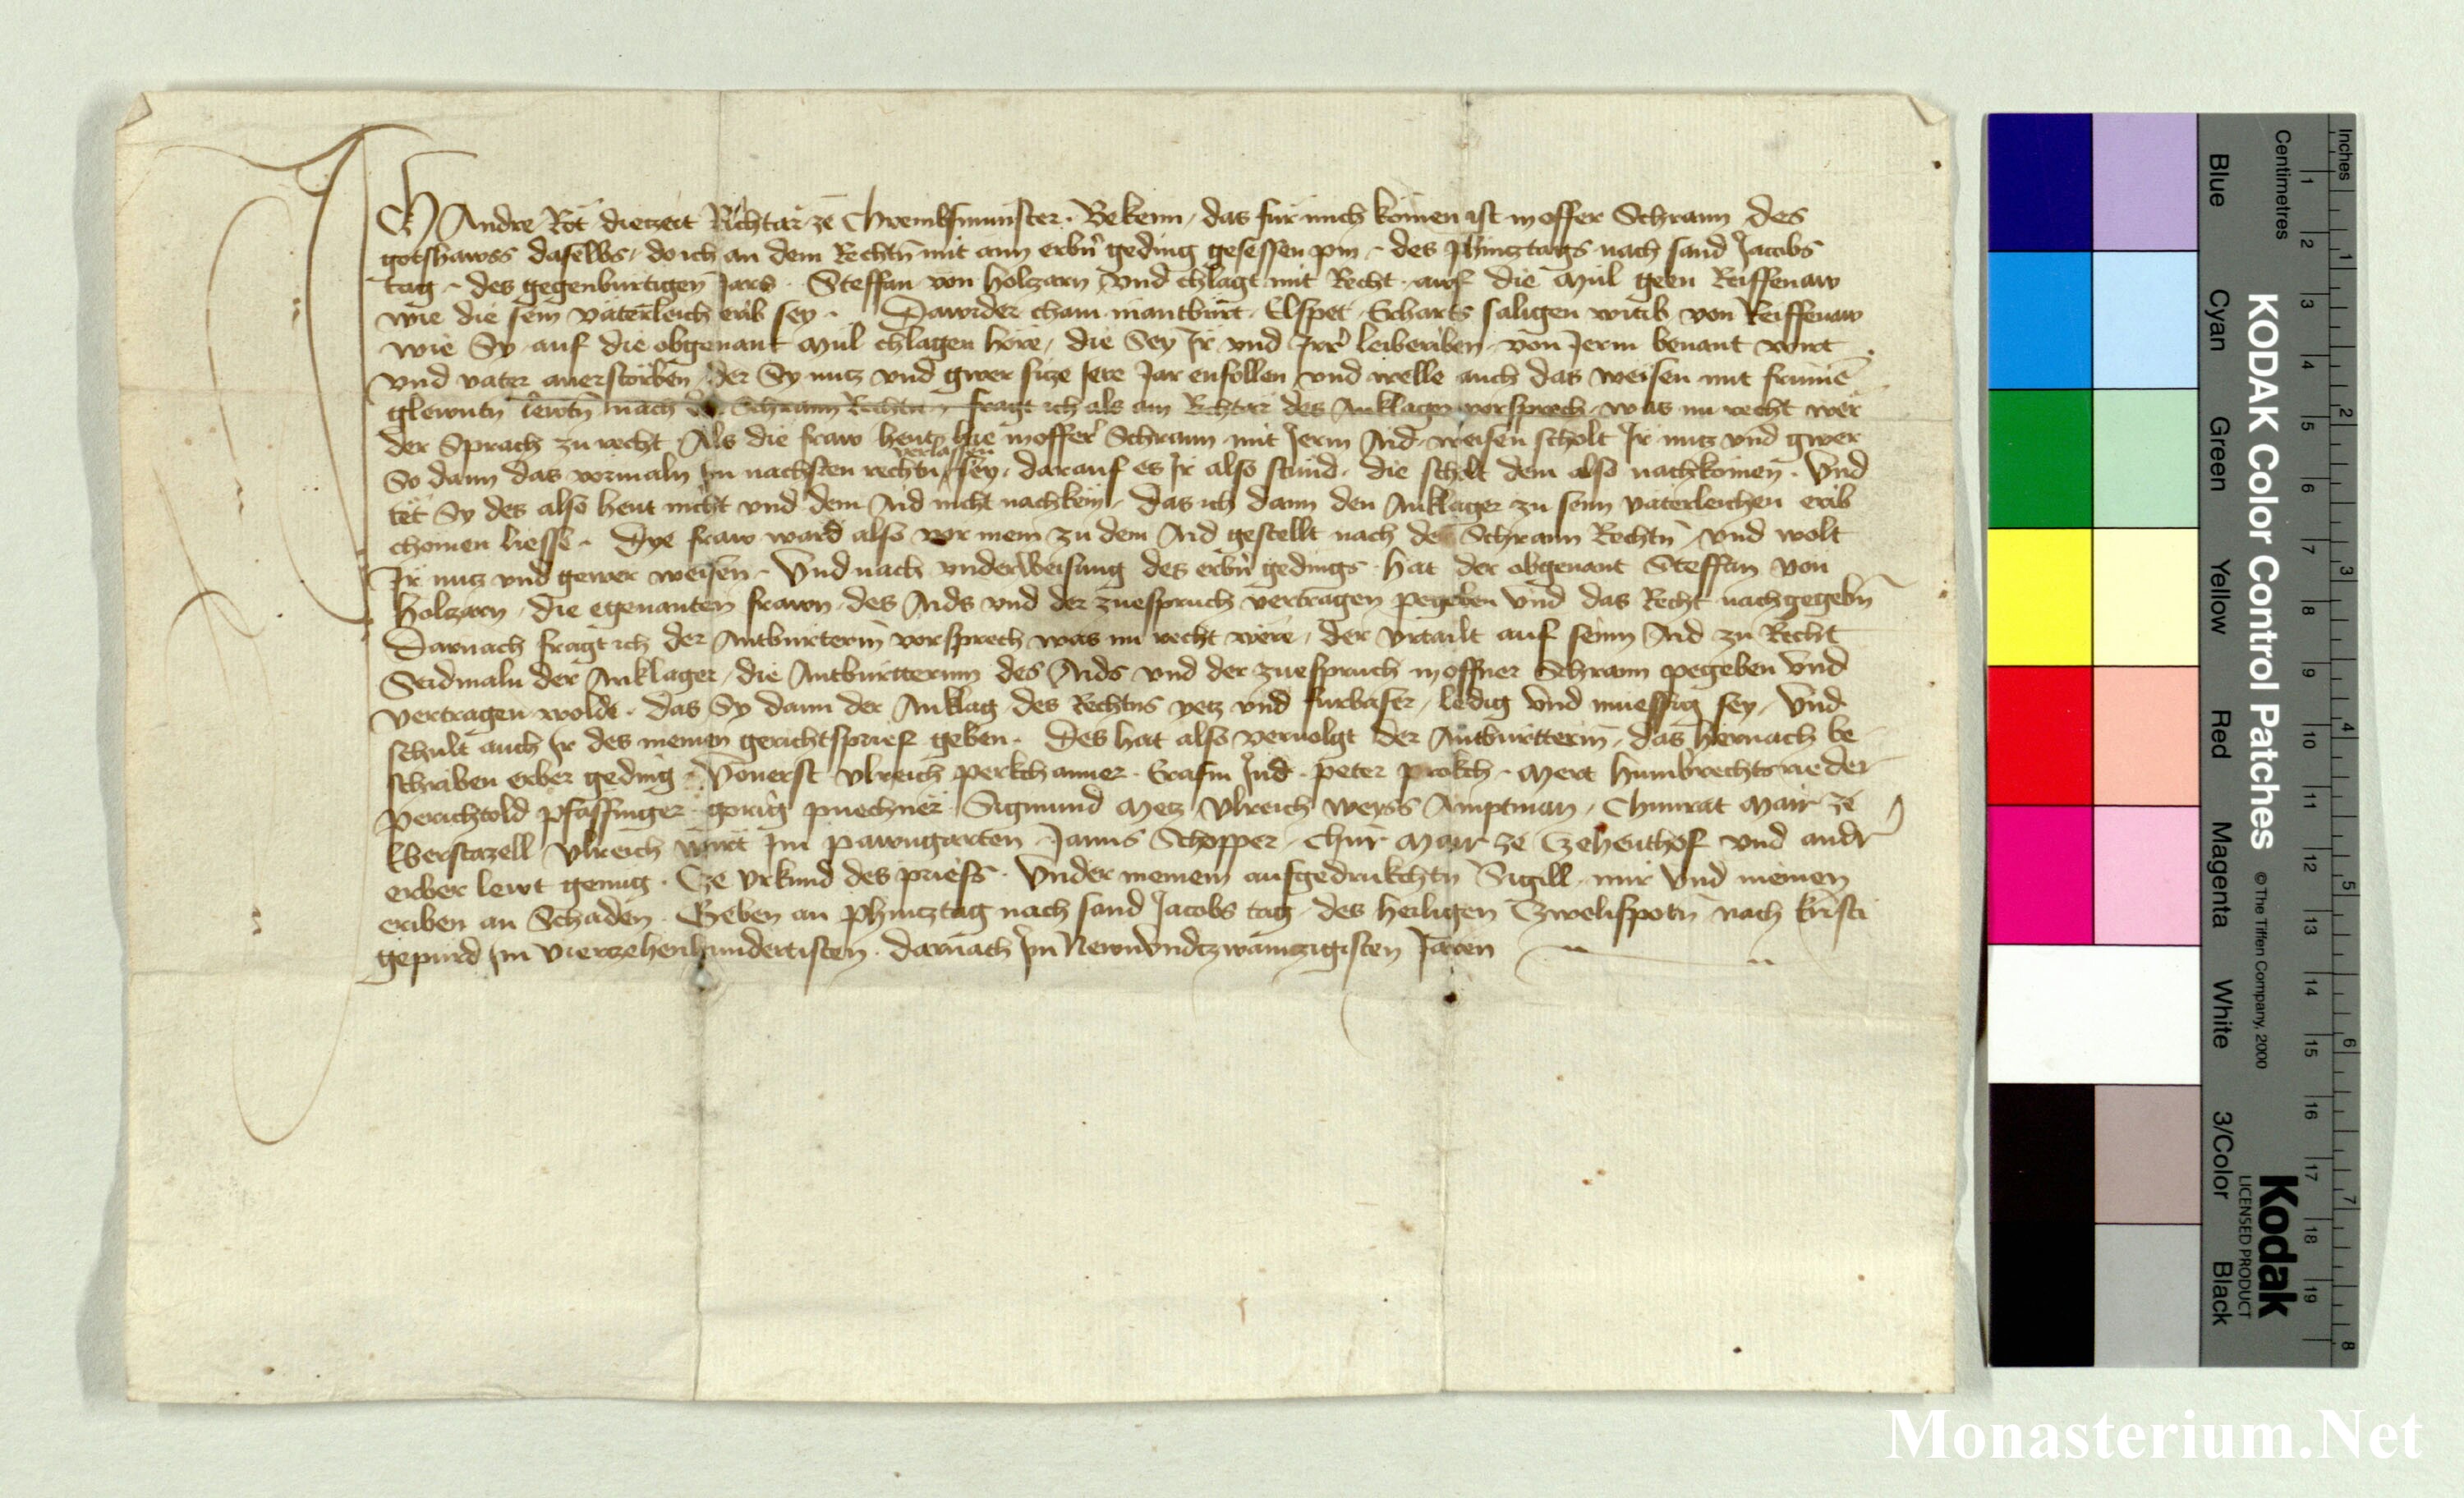 ICH Andre Rot dietzeit Richtar ze Chremsmunster. Bekenn, das fur mich komen ist in offer Schrann des
gotshawss daselbs, do ich an dem Rechtn mit ann erbn geding gesessen pin, des Phintztags nach sand Jacobs
tag, des gegenburtigen Jars. Steffan von holtzarn, vnd chlagt mit Recht, auf die Mul geen Reiffenaw
wie die sein väterleich erib sey. Dawider cham in antburt, Elspet, Ekharts saligen witib von Reiffenaw
wie Sy auf die obgenant Mul chlagen höre, die Sey Ir vnd Irr leiberiben von Jerm benant wirt
vnd vater anerstorben, der Sy nutz vnd gwer sitze Iere Jar enfollen, vnd welle auch das weisen mit frume
glewntn lewtn nach der Schrann Rechtn, fragt ich als ain Richtar des Anklager vorsprech, was nu recht wer
der Sprach zu recht, Als die fraw hewt hie in offer Schrann mit Jerm Aid weisen scholt Ir nutz vnd gwer
verlassen
So dann das vormaln Im nachsten rechtn sey, darauf es Ir also stund, die scholt dem also nachkomen. Vnd
tet Sy des also hewt nicht vnd dem Aid nicht nachkem, Das ich dann den Anklager zu seim vaterleichen erib
chomen liesse. Dye fraw ward also vor mein zu dem Aid gestellt nach der Schrann Rechtn, vnd wolt
Ir nutz vnd gewer weisen. Vnd nach vnderweisung des erbn gedings, hat der obgenant Steffan von
holtzarn, die egenanten frawn, des Aids vnd der zuespruch vertragen pegeben vnd das Recht nachgegebn
Darnach fragt ich der Antburterin vorsprech was nu recht were, der vrtailt auf seinn Aid zu Recht
Seidmaln der Anklager, die Antburtterinn des Aids vnd der zuespruch in offner Schrann pegeben vnd
vertragen wolde. das Sy dann der Anklag des Rechtns yetz vnd furbaser, ledig vnd muessig sey, Vnd
schult auch Ir des meinen gerichtsprief geben. Des hat also veruolgt der Antburtterin, das hernach be
schriben erber geding. Vonerst Vlreich perkchaimer. Erasm Ind. peter prokch. Mert humbrechtsrieder
perichtold pfaffinger. gorig puechner. Sigmund Metz, Vlreich weyss Amptman, Chunrat Mair ze
Eberstazell, Vlreich wirt Im pawngarten, Janns Schopper, Chunr Mair ze Czehenthof vnd andr
erber lewt genug. Cze vrkund des priefs. Vnder meinem aufgedrukchtn Sigill, mir vnd meinen
eriben an Schaden. Geben an Phintztag nach sand Jacobs tag, des heiligen Czwelifpotn nach kristi
gepurd Im vierzehenhundertisten, darnach Im Newnvndtzwaintzigisten Jaren
KODAK Color Control Patches
© The Tiffen Company, 2000
Kodak
LICENSED PRODUCT
Inches
Centimetres
1 2 3 4 5 6 7 8 9 10 11 12 13 14 15 16 17 18 19
1 2 3 4 5 6 7 8
Blue
Cyan
Green
Yellow
Red
Magenta
White
3/Color
Black
Monasterium.Net